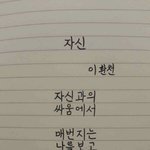 자신
이환천
자신과의
싸움에서
매번지는
나를보고